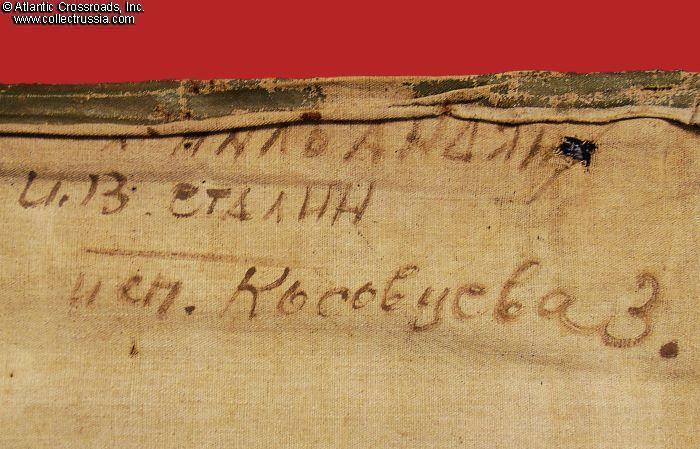 © Atlantic Crossroads, Inc.
www.collectrussia.com
И.В. СТАЛИН
исп. Косовцева З.